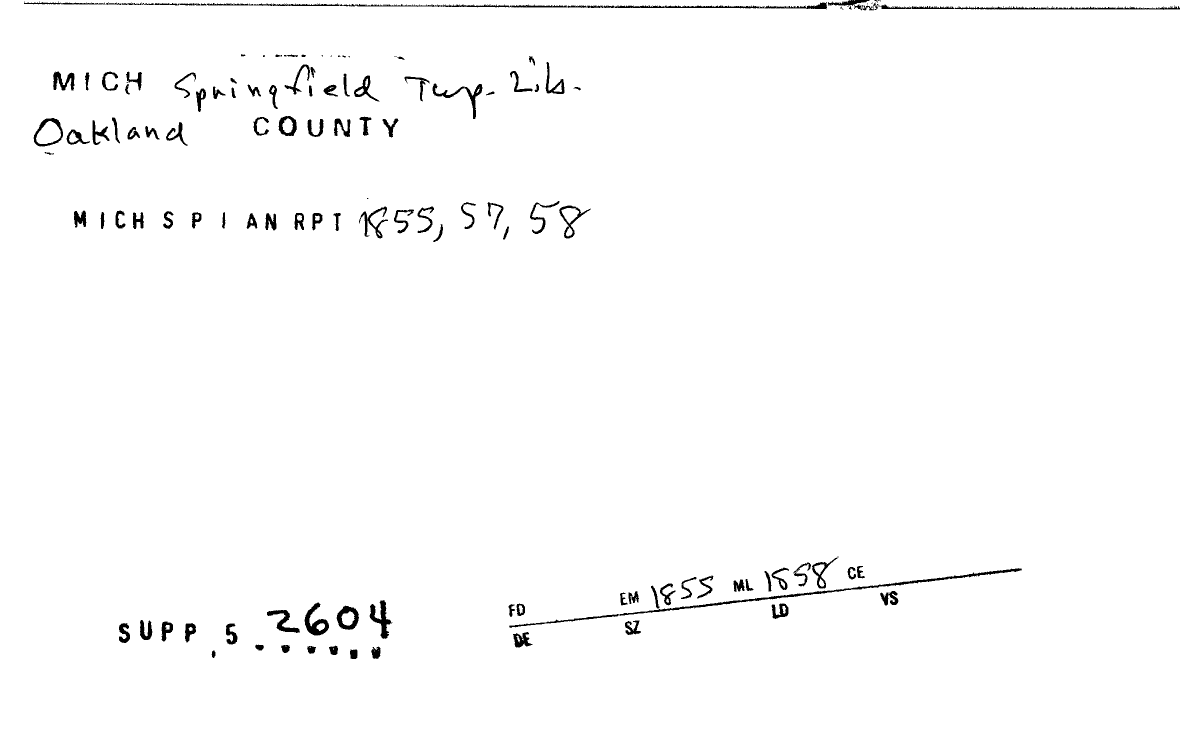 MICH Springfield Twp. Lib.
Oakland COUNTY
MICH S P I AN RPT 1855, 57, 58
SUPP. 5 2604
FD EM 1855 ML 1858 CE
DE SZ LD VS